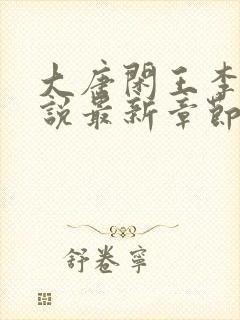 大唐閑王李
說最新章節
舒卷寧